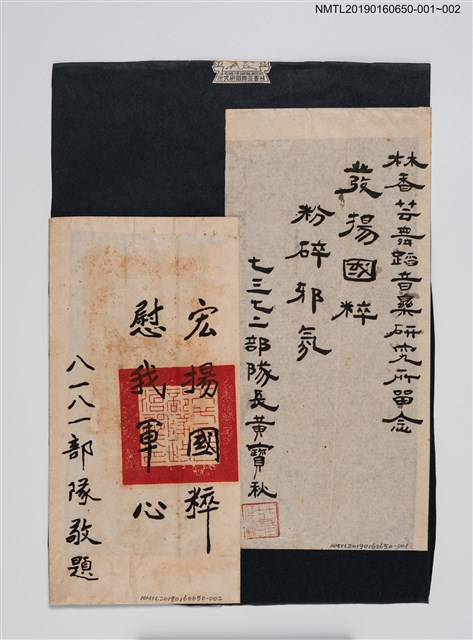 NMTL20190160650-001~002
林香芸舞蹈音樂研究所留念
發揚國粹
粉碎邪氛
七三七二部隊長黃寶秋
NMTL20190160650-001
宏揚國粹
慰我軍心
八一八一部隊敬題
NMTL20190160650-002